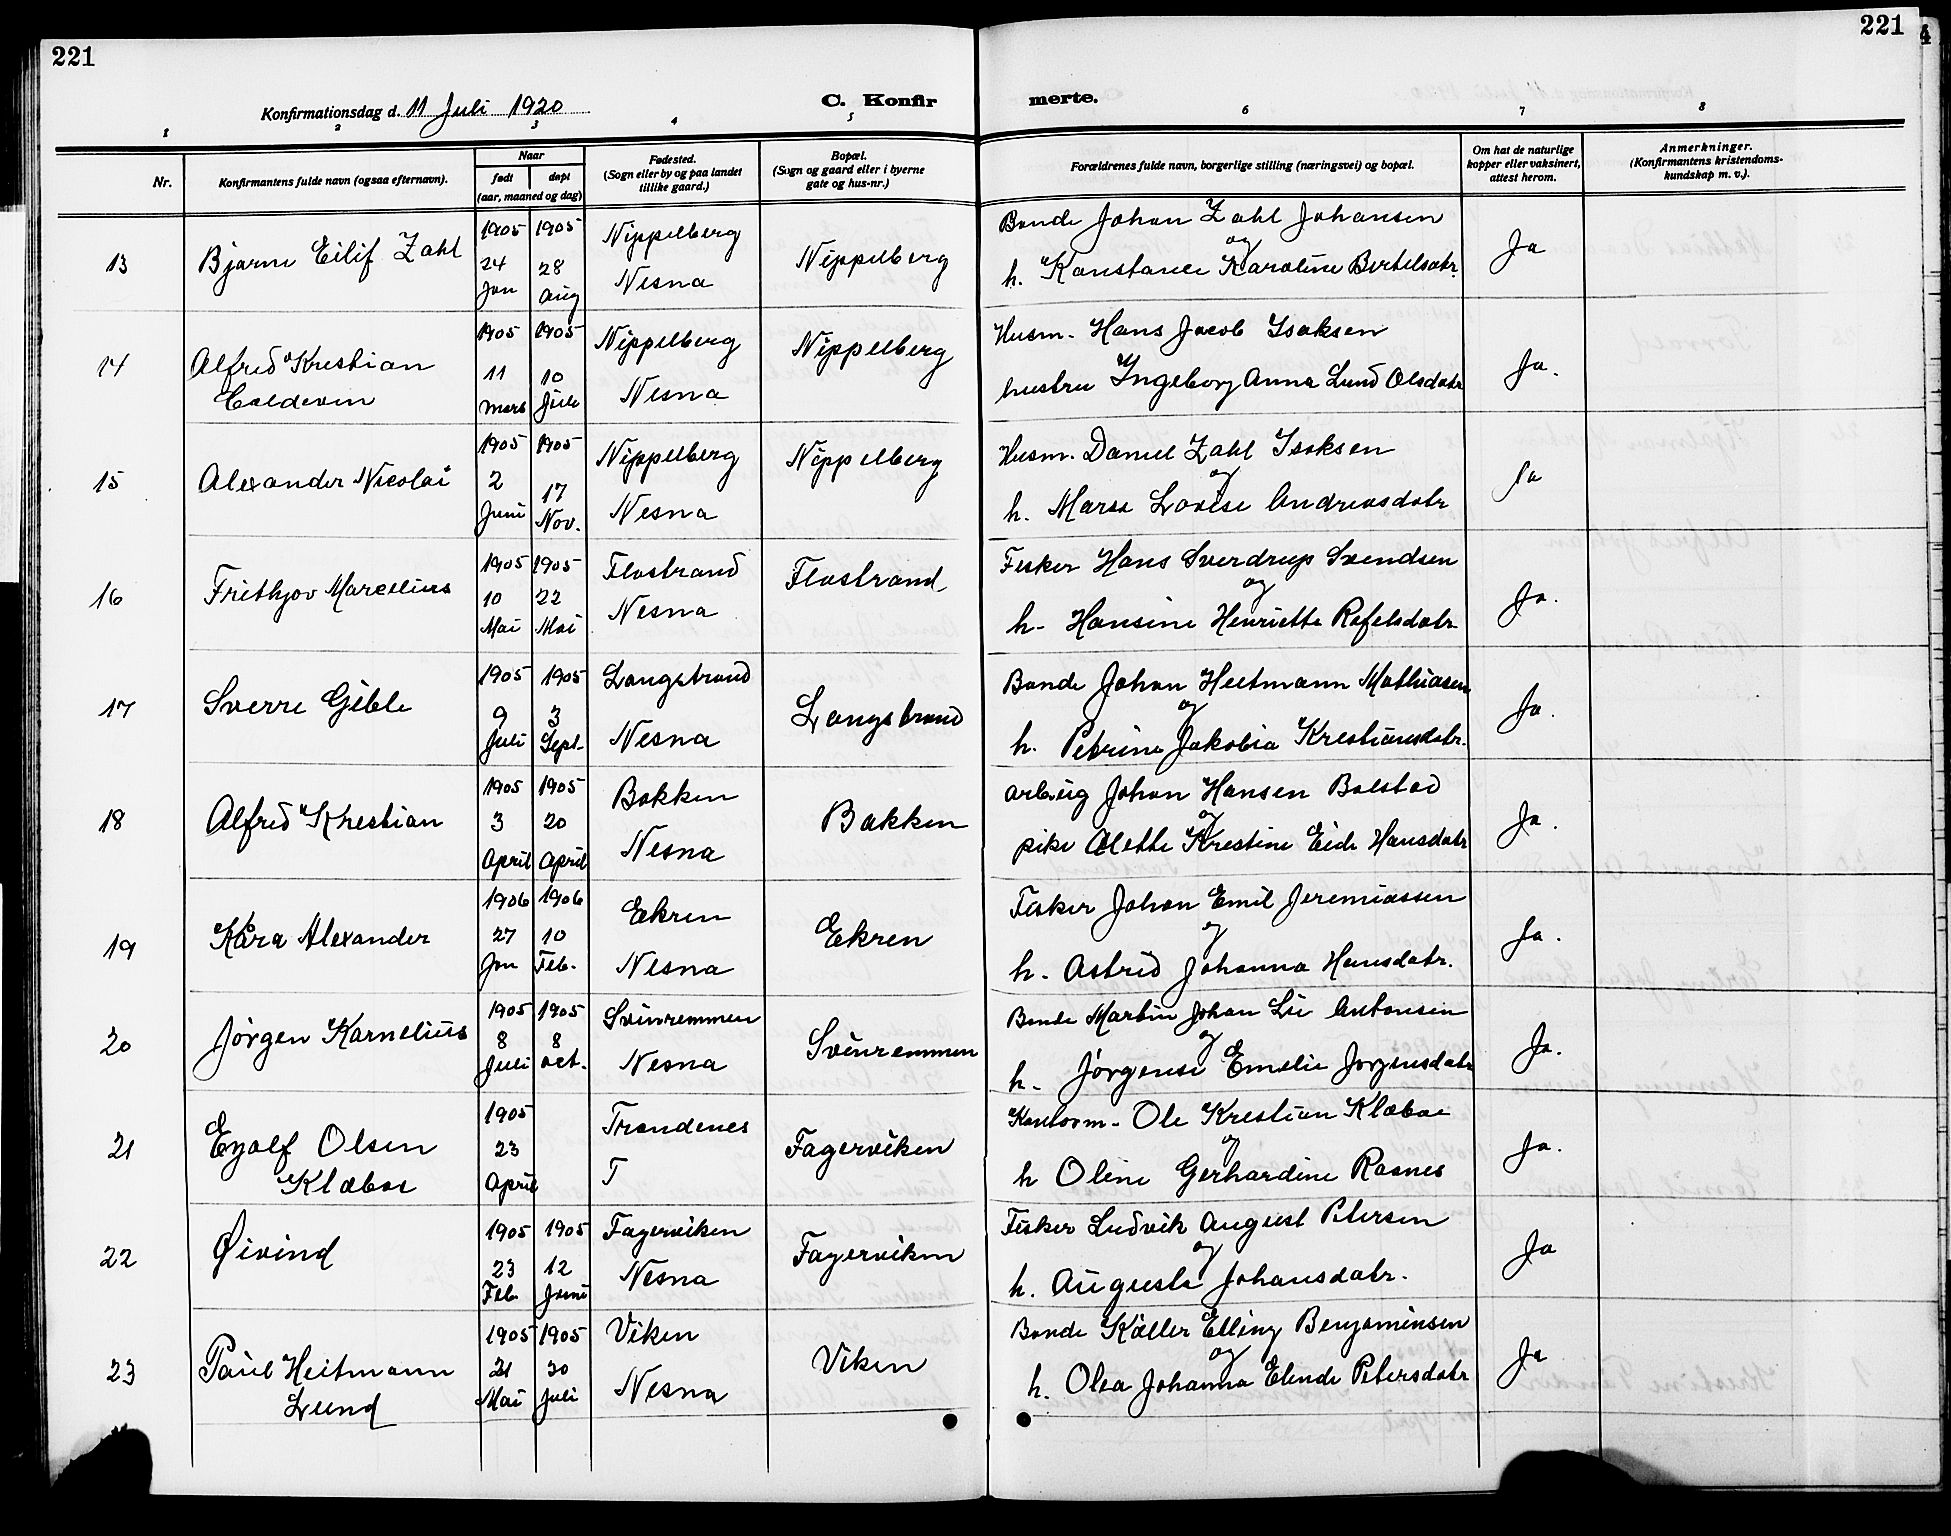 221
221
Konfirmationsdag d. 11 Juli 1920
C. Konfirmerte.
1 2 3 4 5 6 7 8
Nr.
Konfirmantens fulde navn (ogsaa efternavn).
Naar
født
døpt
(aar, maaned og dag)
Fødested.
(Sogn eller by og paa landet
tillike gaard.)
Bopæl.
(Sogn og gaard eller i byerne
gate og hus-nr.)
Forældrenes fulde navn, borgerlige stilling (næringsvei) og bopæl.
Om hat de naturlige
kopper eller vaksinert,
attest herom.
Anmerkninger.
(Konfirmantens kristendoms-
kundskap m. v.).
13 Bjarne Eilif Zahl
1905 24 Jan
1905 28 Aug
Nippelberg
Nesna
Nippelberg
Bonde Johan Zahl Johansen
og
h. Konstance Karoline Bertelsdtr.
Ja
14 Alfred Kristian
Coldevin
1905 11 Mars
1905 10 Juli
Nippelberg
Nesna
Nippelberg
Husm. Hans Jacob Isaksen
hustru Ingeborg Anna Lund Olsdatr
Ja.
15 Alexander Nicolai
1905 2 Juni
1905 17 Nov.
Nippelberg
Nesna
Nippelberg
Husm. Daniel Zahl Isaksen
og
h. Marsa Lovise Andreasdatr
Ja
16 Frithjov Marcelius
1905 10 Mai
1905 22 Mai
Flostrand
Nesna
Flostrand
Fisker Hans Sverdrup Svendsen
og
h. Hansine Henriette Rafelsdatr
Ja.
17 Sverre Gible
1905 9 Juli
1905 3 Sept.
Langstrand
Nesna
Langstrand
Bonde Johan Heitmann Mathiasen
og
h. Petrine Jakobia Kristiansdatr.
Ja.
18 Alfred Khristian
1905 3 April
1905 20 April
Bakken
Nesna
Bakken
Arb.ug Johan Hansen Bolstad
og
pike Alette Kristine Eide Hansdatr
Ja.
19 Kåra Alexander
1906 27 Jan
1906 10 Feb.
Ekren
Nesna
Ekren
Fisker Johan Emil Jeremiassen
og
h. Astrid Johanna Hansdatr.
Ja.
20 Jørgen Kornelius
1905 8 Juli
1905 8 oct.
Svinremmen
Nesna
Svinremmen
Bonde Martin Johan Li Antonsen
og
h. Jørgensi Emelie Jørgensdatr
Ja.
21 Eyolf Olsen
Klæboe
1905 23 April
Trondenes
T
Fagerviken
Ole Kristian Klæboe
og
h Oline Gerhardine Rasnes
Ja.
22 Øivind
1905 23 Feb.
1905 12 Juni
Fagerviken
Nesna
Fagerviken
Fisker Ludvik August Petersen
og
h. Augusta Johansdatr.
Ja
23 Paul Heitmann
Lund
1905 21 Mai
1905 30 Juli
Viken
Nesna
Viken
Bonde Käller Elling Benjaminsen
og
h. Olea Johanna Elende Petersdatr
Ja